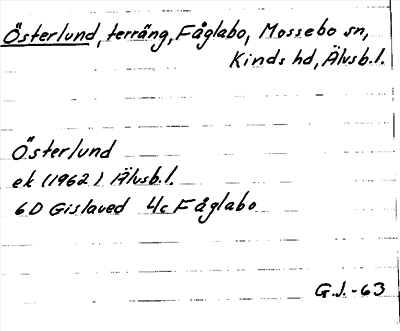 Österlund, terräng, Fåglabo, Mossebo sn,
Kinds hd, Älvsb.l.
Österlund
ek (1962) Älvsb.l.
6D Gislaved 4c Fåglabo
G.J.-63